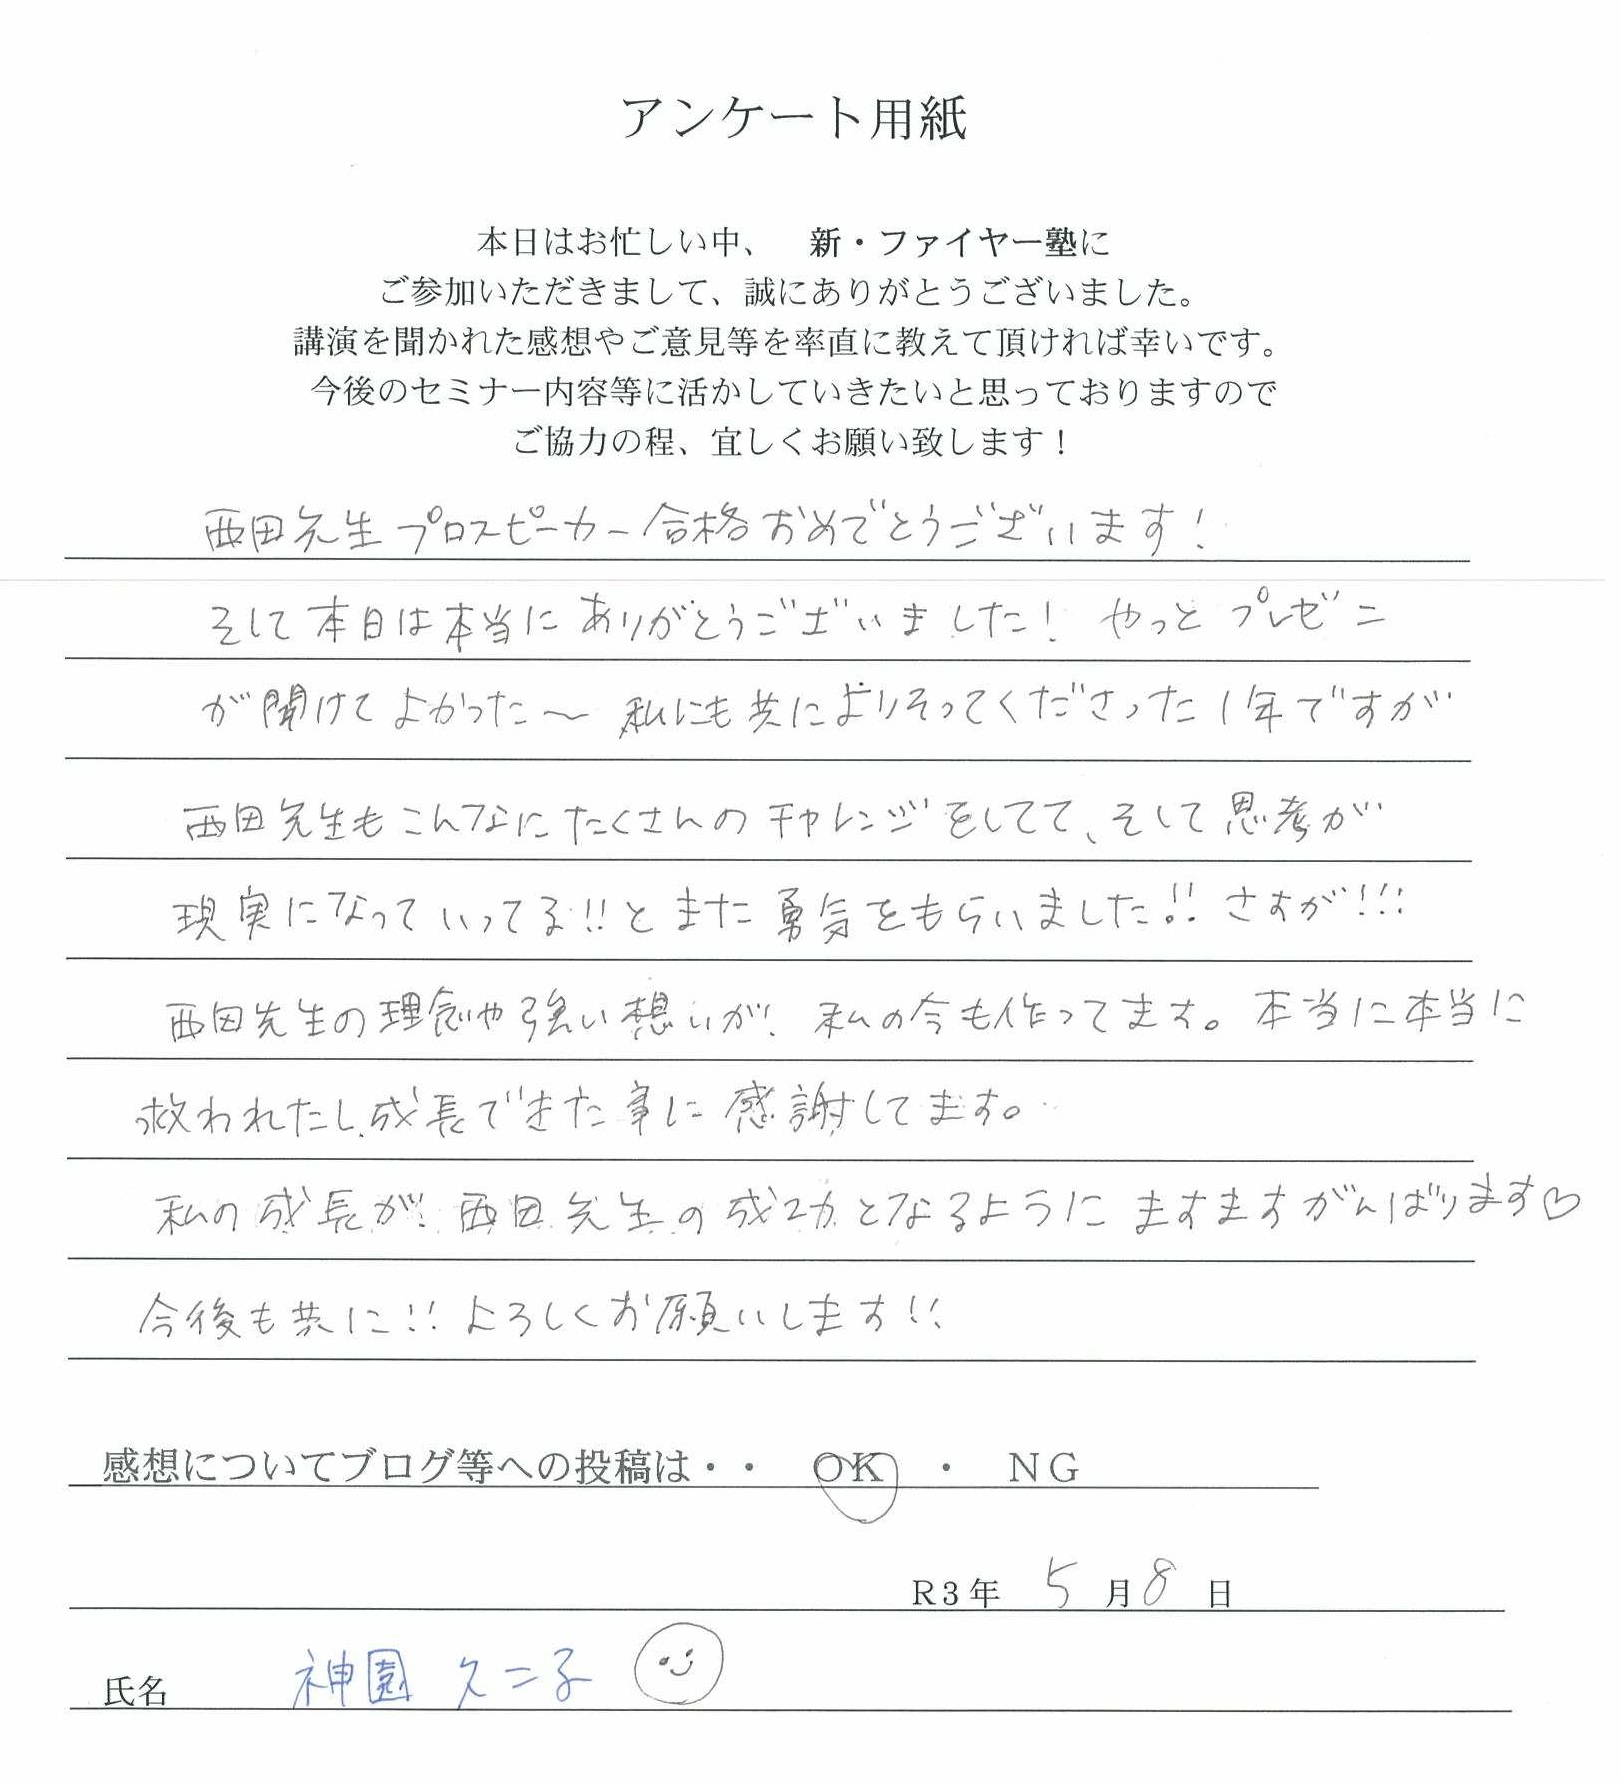 アンケート用紙
本日はお忙しい中、　新・ファイヤー塾に
ご参加いただきまして、誠にありがとうございました。
講演を聞かれた感想やご意見等を率直に教えて頂ければ幸いです。
今後のセミナー内容等に活かしていきたいと思っておりますので
ご協力の程、宜しくお願い致します！
西田先生プロスピーカー合格おめでとうございます！
そして本日は本当にありがとうございました！ やっとプレゼン
が聞けてよかった〜 私にも共によりそってくださった1年ですが
西田先生もこんなにたくさんのチャレンジをしてて、そして思考が
現実になっていってる!!とまた勇気をもらいました!! さすが!!!
西田先生の理念や強い想いが、私の今も作ってます。本当に本当に
救われたし、成長できた事に感謝してます。
私の成長が、西田先生の成功となるようにますますがんばります♡
今後も共に!! よろしくお願いします!!
感想についてブログ等への投稿は・・　OK　・　NG
R3年　5　月　8　日
氏名　神園 久二子